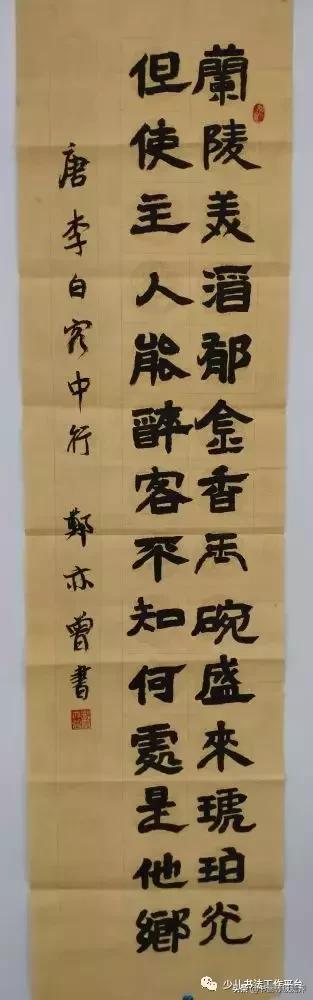 蘭陵美酒郁金香玉碗盛來琥珀光
但使主人能醉客不知何處是他鄉
唐李白客中行 鄭亦曾書
少儿书法工作平台